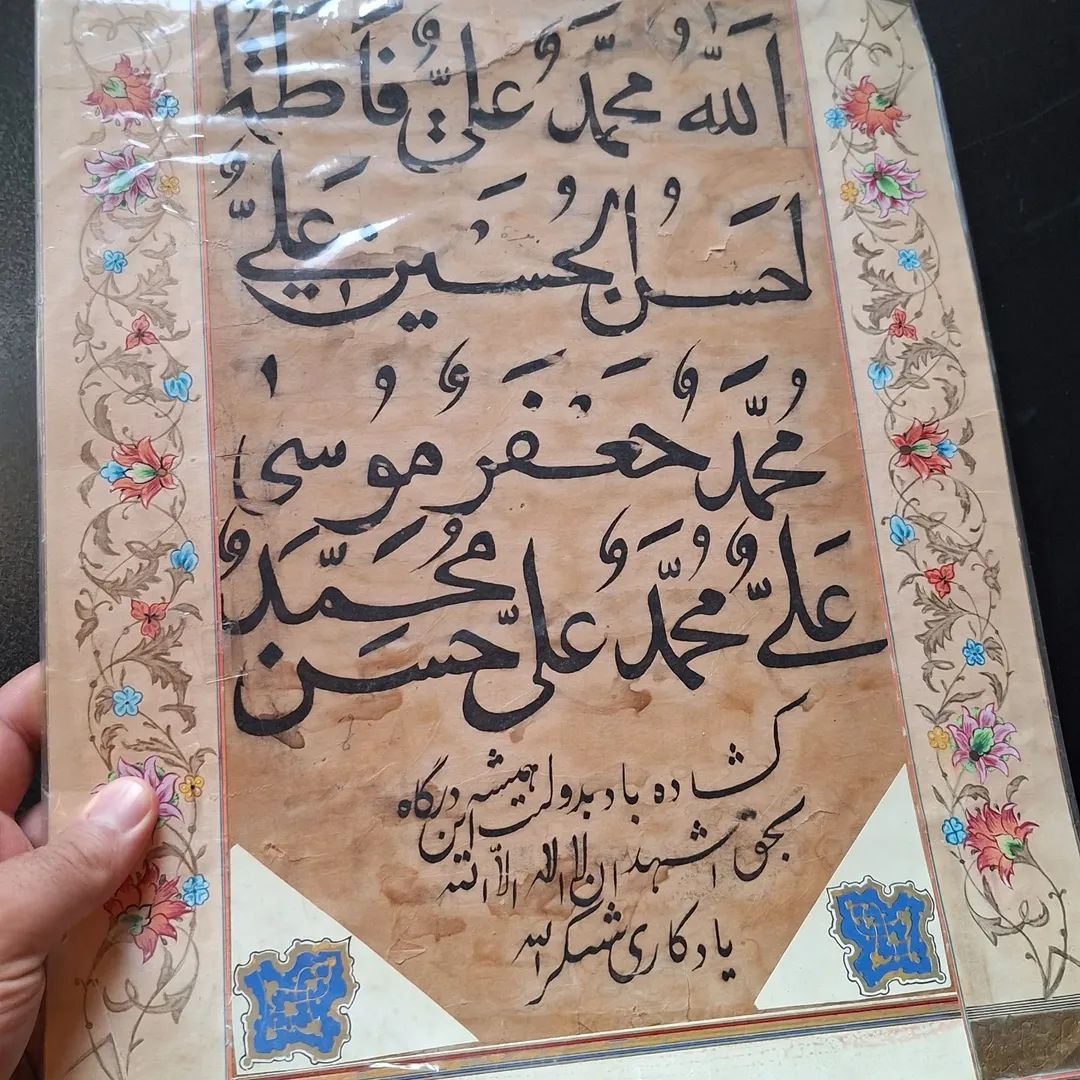 اللهُ محمّدٌ علیٌّ فاطمة
احسنُ الحُسَینِ عَلیٌّ
مُحمّدٌ جَعْفَرٌ مُوسیٰ
عَلیٌّ مُحمّدٌ علیٌّ حَسَن مُحَمَّدٌ
کشاده باد بدولت همیشه این درگاه
بحق اشهد ان لا اله الا الله
یادکاری شکرالله